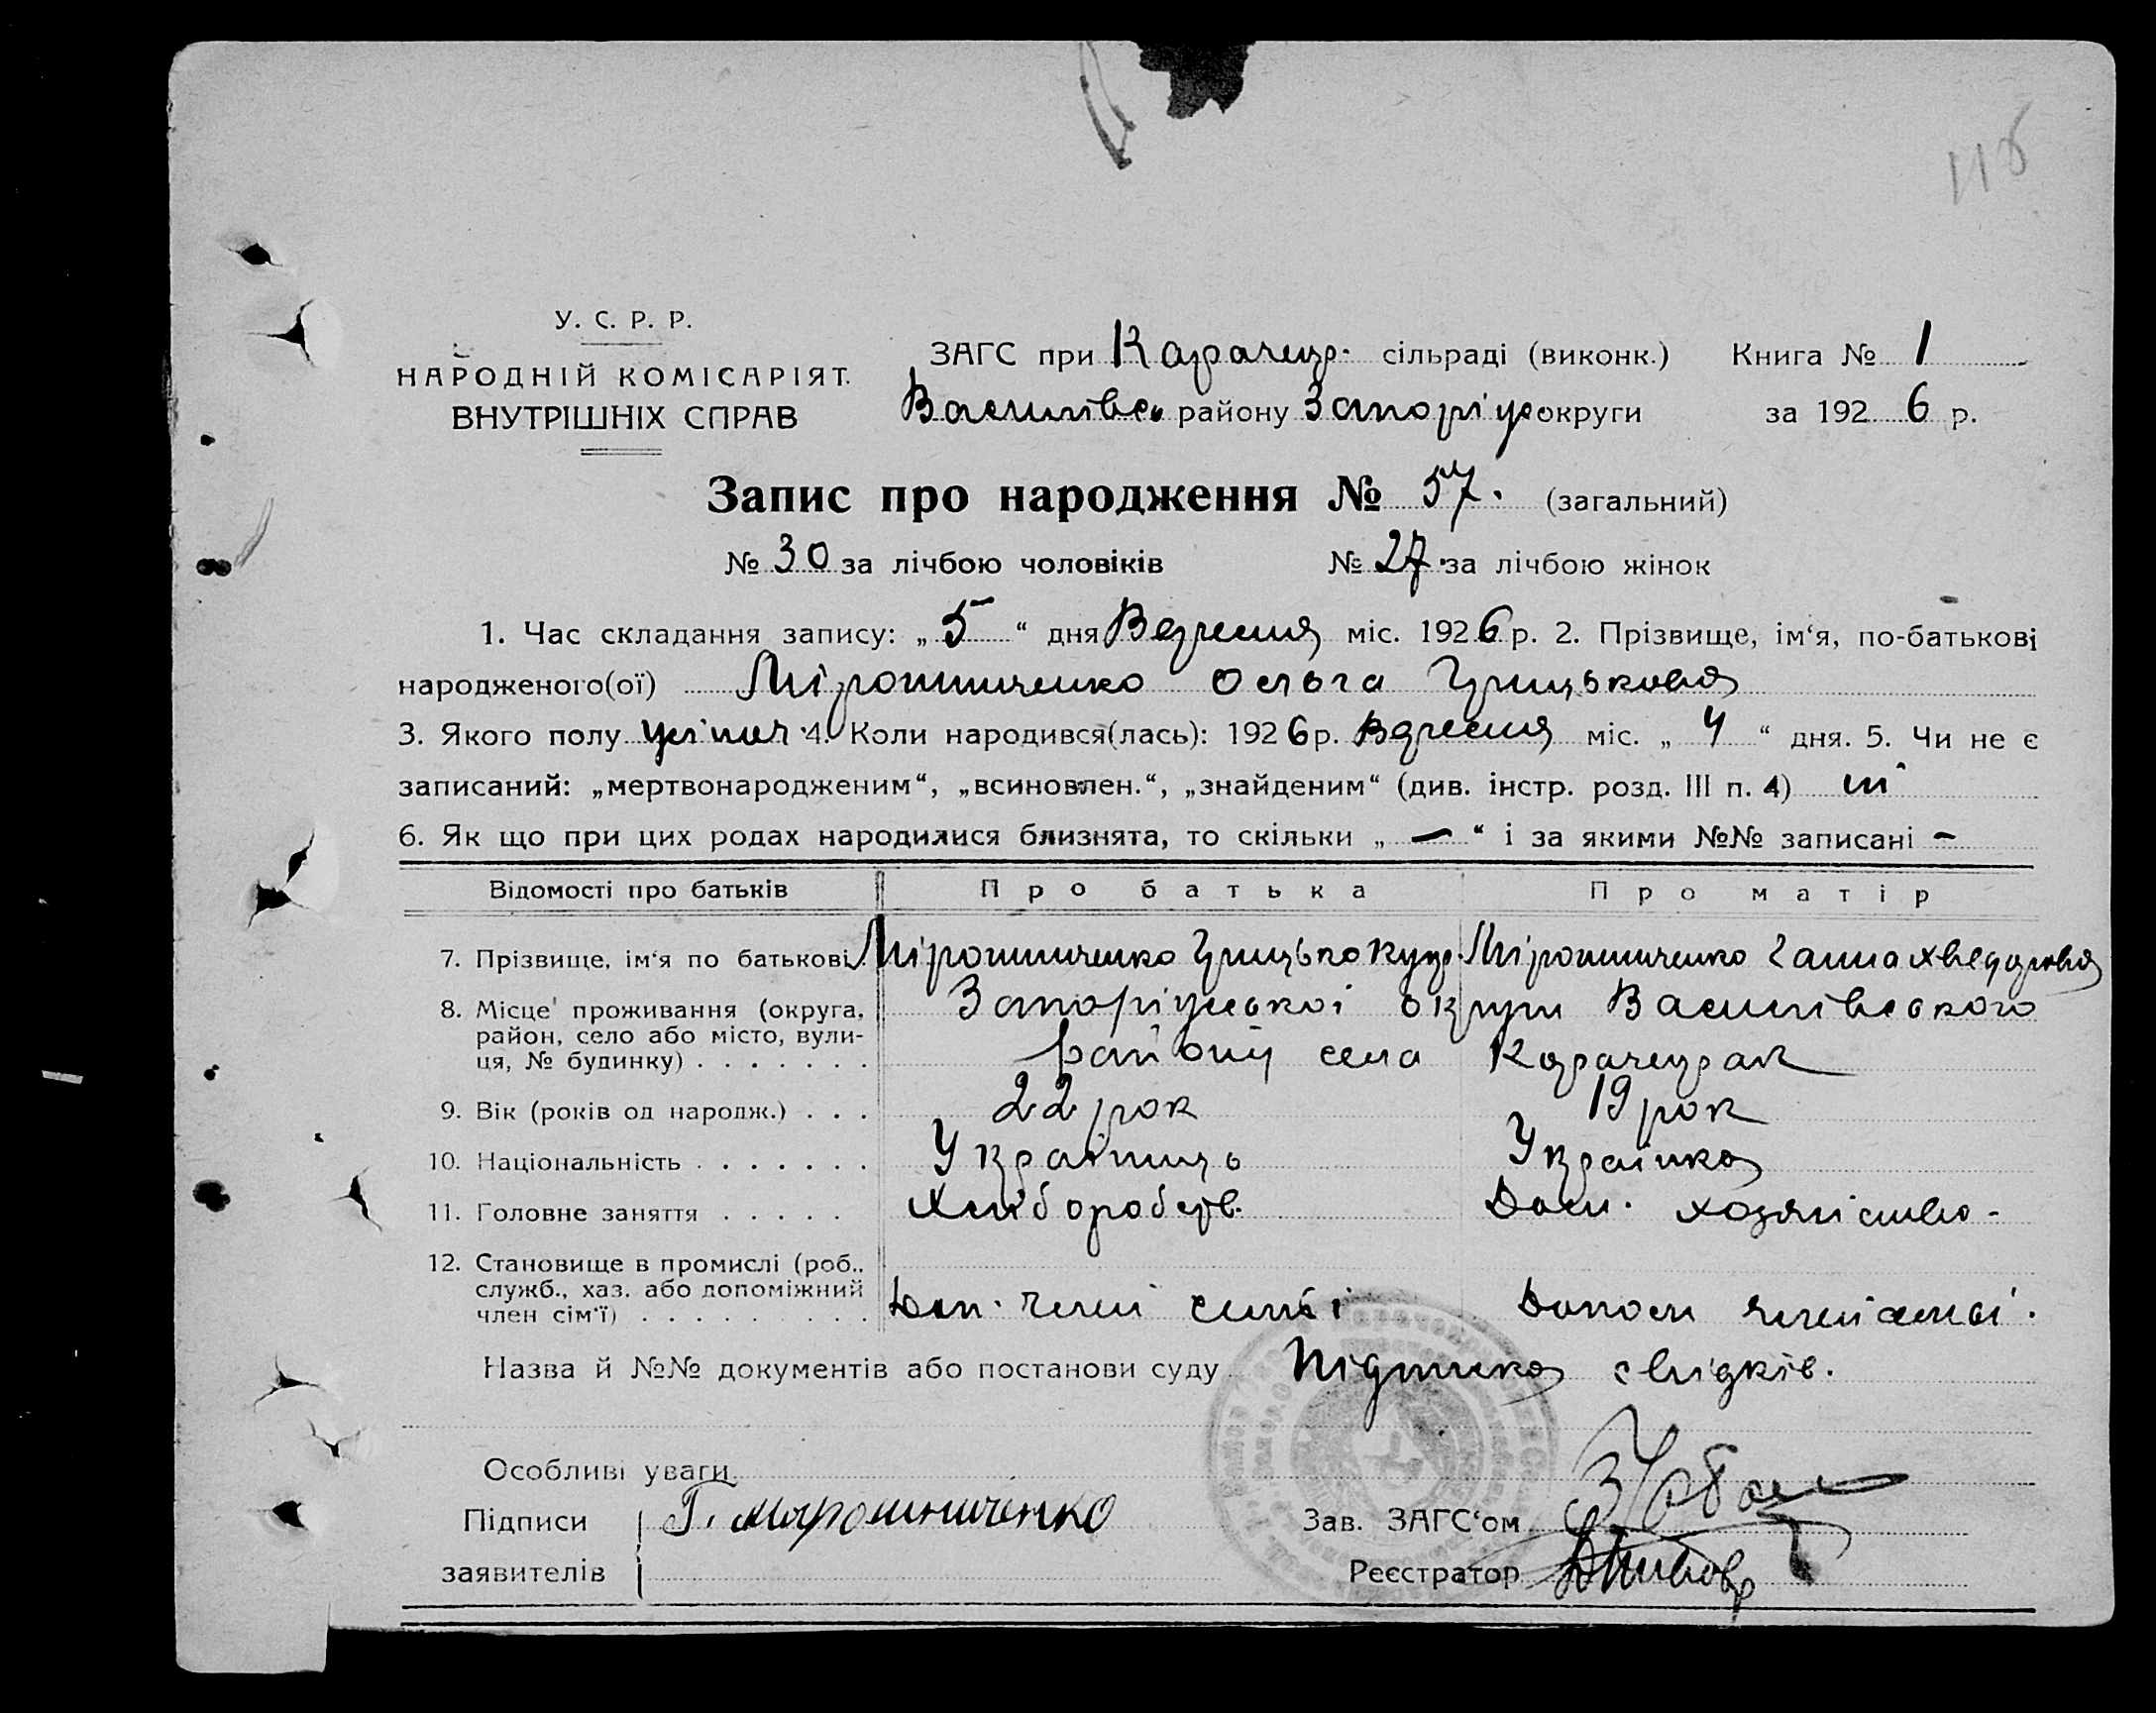 116
У. С. Р. Р.
НАРОДНІЙ КОМІСАРІЯТ.
ВНУТРІШНІХ СПРАВ
ЗАГС при Карачекр. сільраді (виконк.) Книга № 1
Василівсь району Запоріж округи за 192 6 р.
Запис про народження № 57. (загальний)
№ 30 за лічбою чоловіків № 27. за лічбою жінок
1. Час складання запису: „ 5 “ дня Вересня міс. 192 6 р. 2. Прізвище, ім‘я, по-батькові
народженого(ої) Мірошниченко Ольга Грицькова
3. Якого полу жіноч. 4. Коли народився(лась): 192 6 р. Вересня міс. „ 4 “ дня. 5. Чи не є
записаний: „мертвонародженим“, „всиновлен.“, „знайденим“ (див. інстр. розд. III п. 4) ні
6. Як що при цих родах народилися близнята, то скільки „ — “ і за якими №№ записані –
Відомості про батьків Про батька Про матір
7. Прізвище, ім‘я по батькові. Мірошниченко Грицько Мірошниченко Ганна Хведорова
8. Місце проживання (округа, Запоріжської округи Василівського
район, село або місто, вули-
ця, № будинку) . . . . . . . району села Карачекрак
9. Вік (років од народж.) . . . 22 рок 19 рок
10. Національність . . . . . . . Українець Українка
11. Головне заняття . . . . . Хліборобств. Дом. хозяйство.
12. Становище в промислі (роб.,
служб., хаз. або допоміжний
член сім‘ї) . . . . . . . . . Доп. член симьі Допом член симьі.
Назва й №№ документів або постанови суду Підписка свідків.
Особливі уваги
Підписи Г. Мирошниченко Зав. ЗАГС‘ом
заявителів Реєстратор